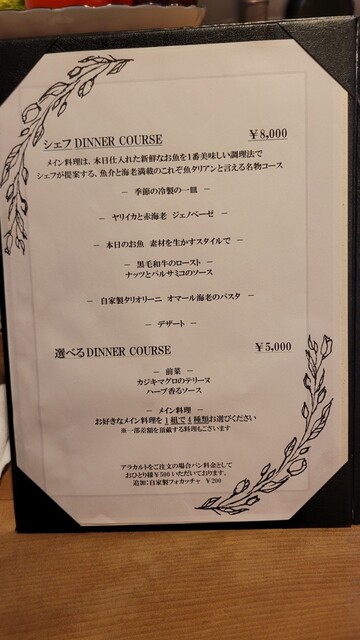 シェフ DINNER COURSE ¥8,000
メイン料理は、本日仕入れた新鮮なお魚を1番美味しい調理法で
シェフが提案する、魚介と海老満載のこれぞ魚タリアンと言える名物コース
－ 季節の冷製の一皿 －
－ ヤリイカと赤海老 ジェノベーゼ －
－ 本日のお魚 素材を生かすスタイルで －
－ 黒毛和牛のロースト －
ナッツとバルサミコのソース
－ 自家製タリオリーニ オマール海老のパスタ －
－ デザート －
選べるDINNER COURSE ¥5,000
－ 前菜 －
カジキマグロのテリーヌ
ハーブ香るソース
－ メイン料理 －
お好きなメイン料理を1組で4種類お選びください
※一部差額を頂戴する料理もございます
アラカルトをご注文の場合パン料金として
おひとり様¥500いただいております。
追加：自家製フォカッチャ ¥200